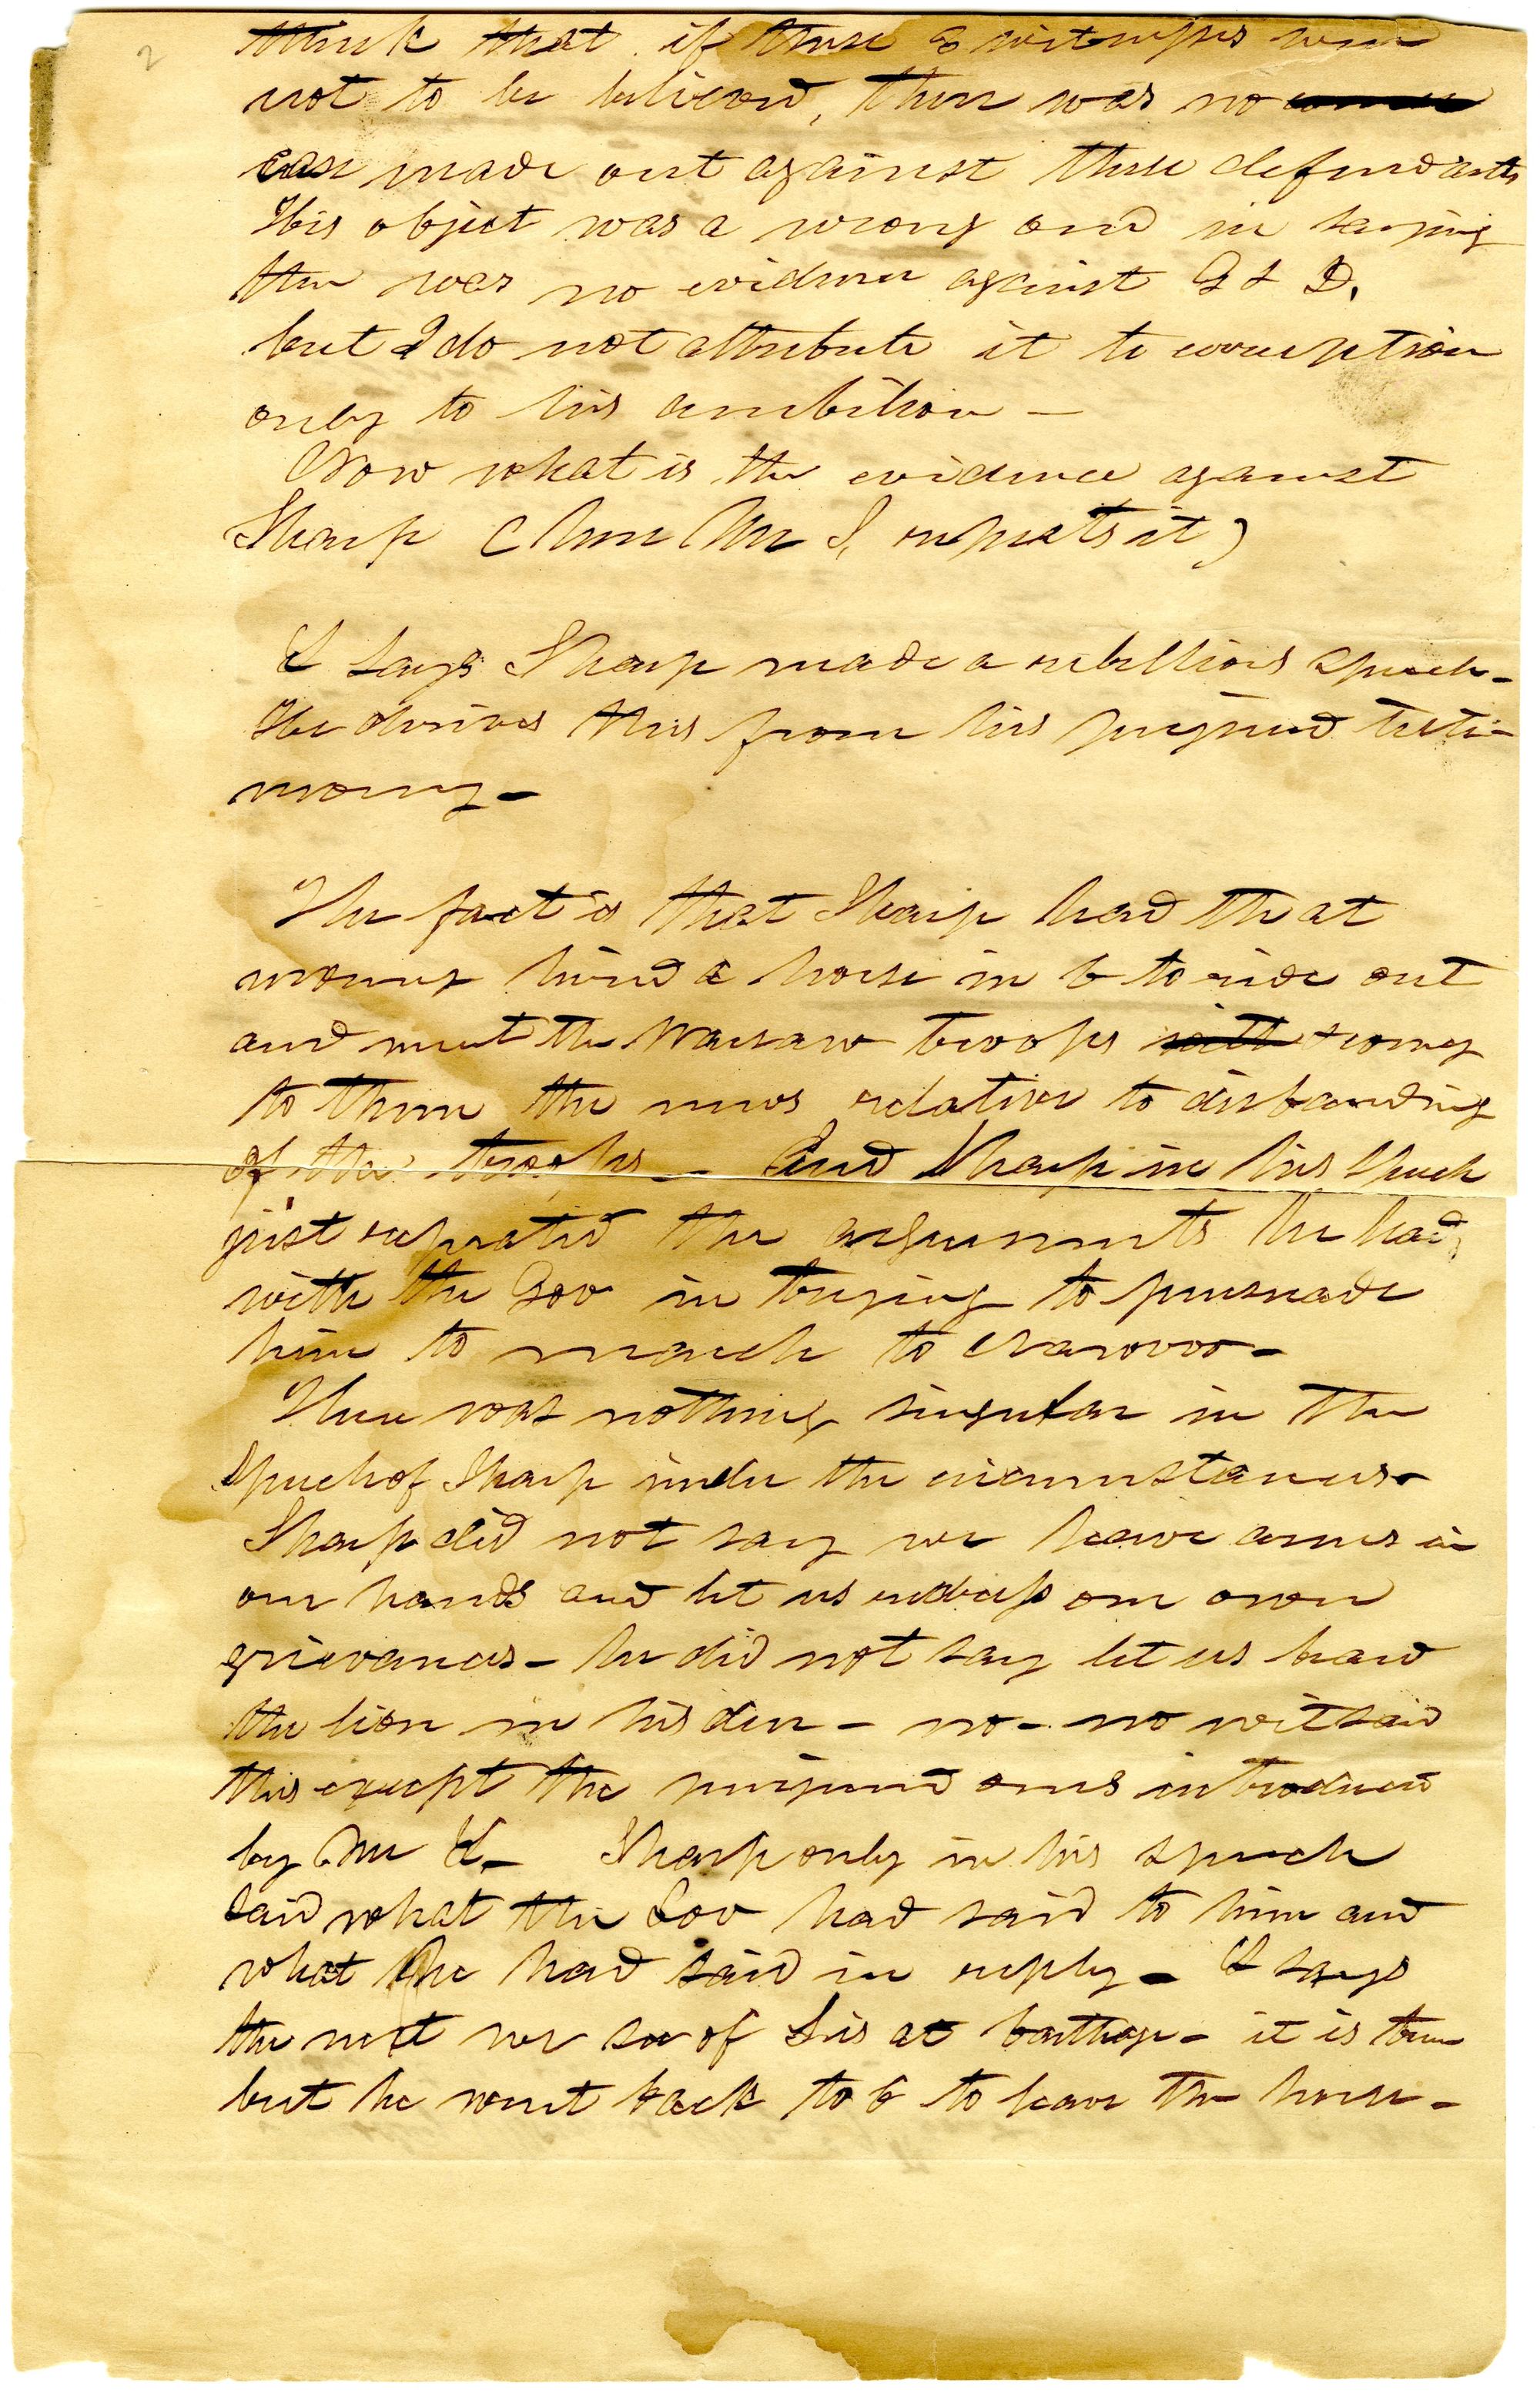 2
think that if these 3 witnesses were
not to be believed, there was no
case made out against these defendants
His object was a wrong one in saying
there was no evidence against G & D.
but I do not attribute it to corruption
only to his ambition —
Now what is the evidence against
Sharp (here Mr S, repeats it)
L says Sharp made a rebellious speech —
He derives this from his perjured testi-
mony —
The fact is that Sharp had that
morning hired a horse in C to ride out
and meet the Warsaw troops & convey
to them the news relative to disbanding
of the troops — And Sharp in his speech
just repeated the arguments he had
with the Gov in trying to persuade
him to march to Nauvoo —
There was nothing singular in the
speech of Sharp under the circumstances —
Sharp did not say we have arms in
our hands and let us redress our own
grievances — he did not say let us beard
the lion in his den — no — no wit said
this except the perjured ones introduced
by Mr L — Sharp only in his speech
said what the Gov had said to him and
what he had said in reply — L says
the next we see of S is at Carthage — it is true
but he went back to C to leave the horse —